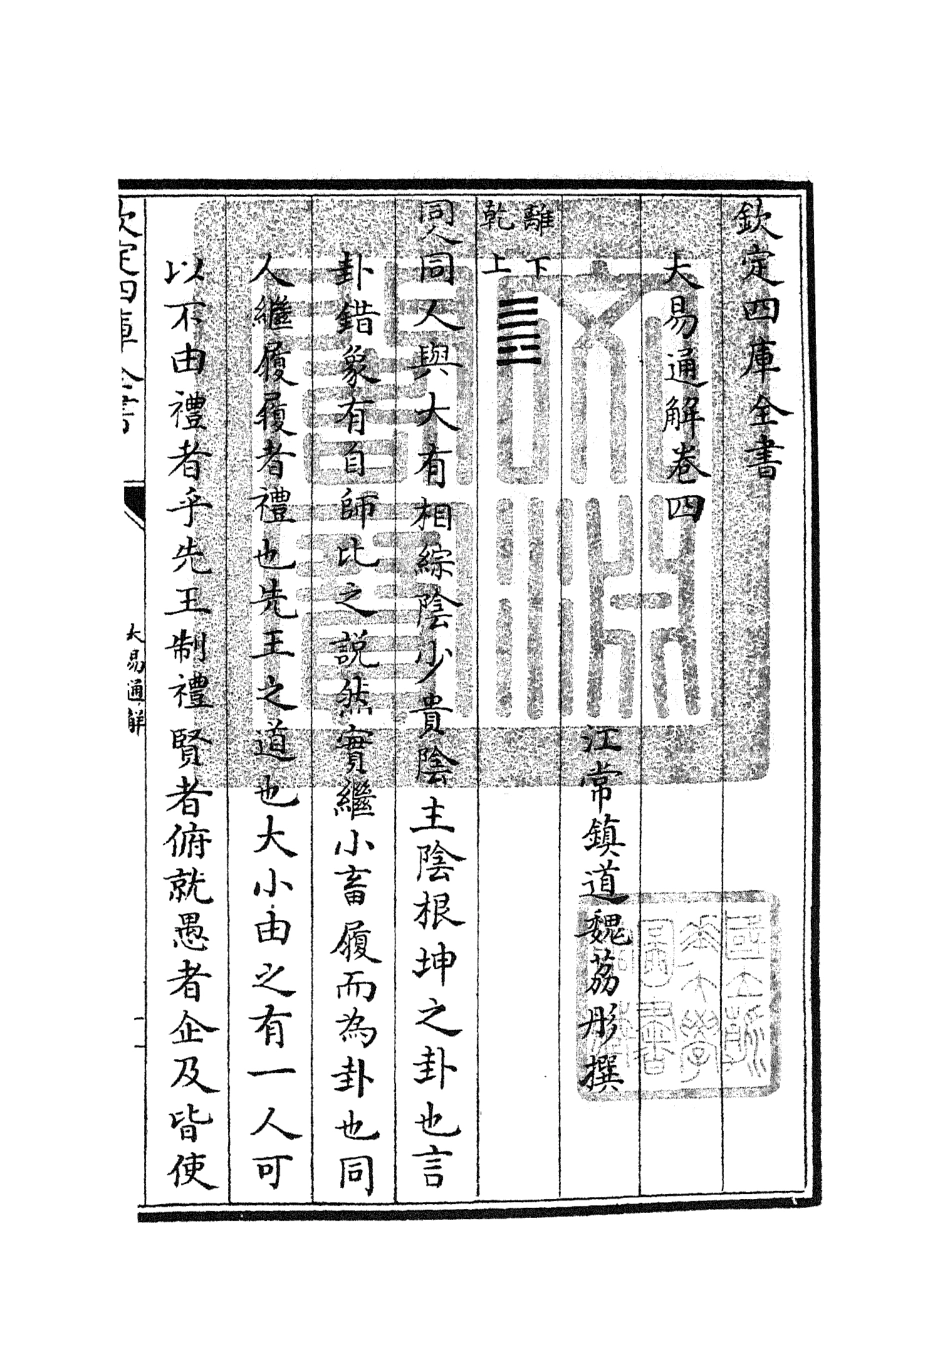 欽定四庫全書
大易通解卷四
江常鎮道魏荔彤撰
離下
乾上
同人同人與大有相綜陰少貴陰主陰根坤之卦也言
卦錯象有自師比之説然實繼小畜履而為卦也同
人繼履履者禮也先王之道也大小由之有一人可
以不由禮者乎先王制禮賢者俯就愚者企及皆使
欽定四庫全書
大易通解